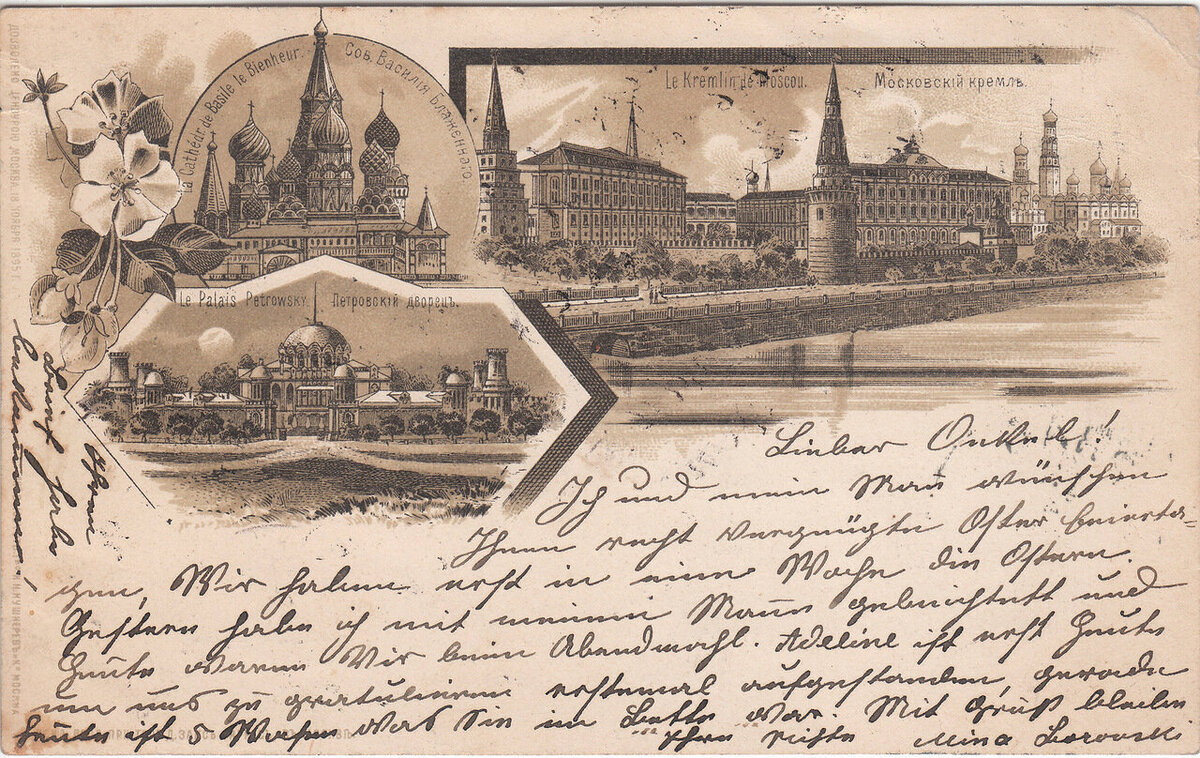 la Cathédr. de Basile le Bienheur. Соб. Василія Блаженнаго.
Le Kremlin de Moscou. Московскій кремль.
Le Palais Petrowsky. Петровскій дворецъ.
Lieber Onkel!
Ich und mein Man̄ wünschen
Ihnen recht vergnügte Oster beierta-
gen, Wir haben erst in eine Woche die Ostern.
Gestern habe ich mit meinem Man̄ gebeichtett und
Heute waren Wir beim Abendmahl. Adeline ist erst Heute
um uns zu gratulieren erstemal aufgestanden, gerade
heute ist 5 Wochen was Sie im Bette war. Mit Gruß bleiben
Ihre Nichte Mina